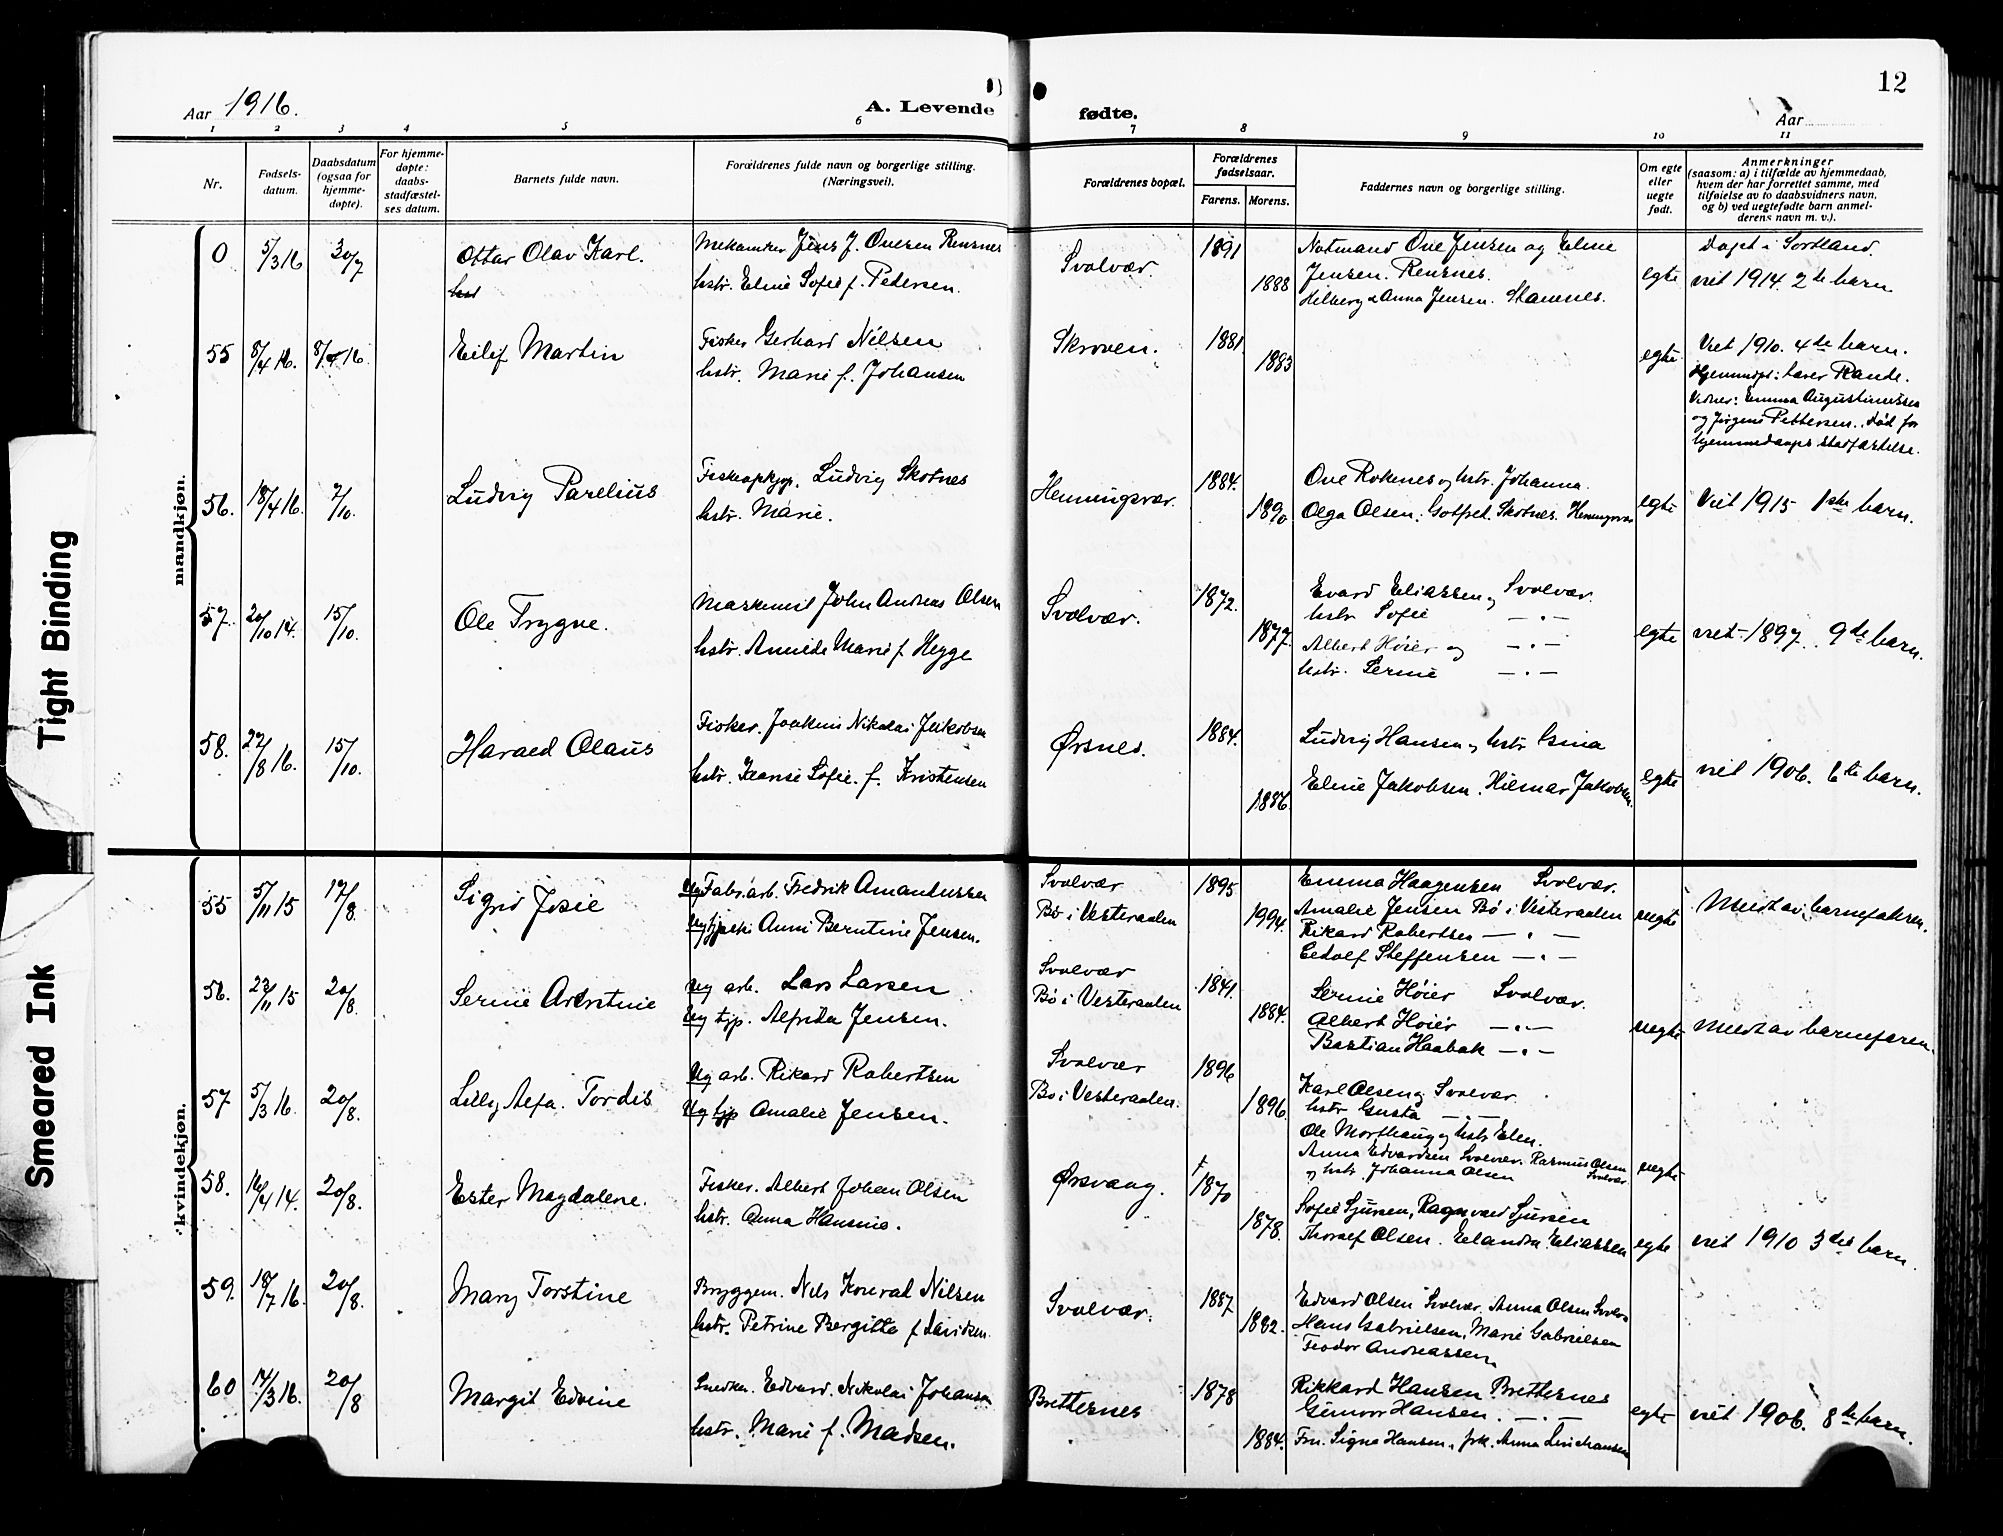 12
Aar 1916.
A. Levende fødte.
Aar
1 2 3 4 5 6 7 8 9 10 11
Nr.
Fødsels-
datum.
Daabsdatum
(ogsaa for
hjemme-
døpte).
For hjemme-
døpte:
daabs-
stadfæstel-
ses datum.
Barnets fulde navn.
Forældrenes fulde navn og borgerlige stilling.
(Næringsvei).
Forældrenes bopæl.
Forældrenes
fødselsaar.
Farens. Morens.
Faddernes navn og borgerlige stilling.
Om egte
eller
uegte
født.
Anmerkninger
(saasom: a) i tilfælde av hjemmedaab,
hvem der har forrettet samme, med
tilføielse av to daabsvidners navn,
og b) ved uegtefødte barn anmel-
derens navn m. v.).
mandkjøn.
0 5/3 16 30/7 Ottar Olav Karl. Jens J. Ovesen Rensnes Svolvær. 1891 Notmand Ove Jensen og Eline Døpt i Sortland.
hstr. Eline Sofie f. Pedersen. 1888 Jensen. Rensnes. egte viet 1914. 2de barn
Hilberg & Anna Jensen. Stamnes.
55 8/4 16. 8/4 16. Eilif Martin Fisker Gerhard Nilsen Skroven. 1881 egte Viet 1910. 4de barn.
hstr. Marie f. Johansen 1883 Hjemmdøpt: Lærer Rande.
Vidner: Emma Augustinussen
og Jørgine Pettersen. Død før
hjemmedaaps stadfæstelse.
56. 18/4 16. 7/10. Ludvig Parelius Fiskeopkjøp. Ludvig Skotnes Henningsvær. 1884. Ove Roknes og hstr. Johanna. egte Viet 1915 1ste barn.
hstr. Marie. 1890 Olga Olsen. Gotfred Skotnes. Henningsvær
57. 20/10 14. 15/10. Ole Trygve. Maskinist John Andreas Olsen Svolvær. 1872. Evard Eliassen og Svolvær.
hstr. Annida Marie f. Hegge 1877. hstr Sofie — " — egte viet 1897. 9de barn.
Albert Høier og — " —
hstr. Serine — " —
58. 27/8 16. 15/10. Harald Olaus Fisker. Joakim Nikolai Jakobsen Ørsnes. 1884. Ludvig Hansen og hstr Gina
hstr. Hansi Sofie f. Kristensen 1886. Eline Jakobsen. Hilmar Jakobsen. egte viet 1906. 6te barn.
kvindekjøn.
55 5/11 15 17/8. Sigrid Josie Ug Fabr.arb. Fredrik Amandussen Svolvær 1895 Emma Haagensen Svolvær.
Ug tjpik: Anni Berntine Jensen. Bø i Vesteraalen 1994. Amalie Jensen Bø i Vesteraalen uegte Meldt av barnefaderen.
Rikard Robertsen — " —
Edolf Steffensen — " —
56. 23/11 15 20/8. Serine Ug arb. Lars Larsen Svolvær 1841. Serine Høier Svolvær.
Ug tjp. Alfrida Jensen. Bø i Vesteraalen 1884. Albert Høier — " — uegte Meldt av barnefaren.
Bastian Haabak — " —
57 5/3 16. 20/8. Lilly Alfa. Tordis Ug arb. Rikard Robertsen Svolvær 1896 Karl Olsen og Svolvær
Ug tjp Amalie Jensen. Bø i Vesteraalen. 1896. hstr Gusta — " —
Ole Morthaug og hstr Elen.
Anna Edvardsen Svolvær. Rasmus Olsen uegte
og hstr. Johanna Olsen Svolvær
58. 16/4 14. 20/8. Ester Magdalene. Fisker. Albert Johan Olsen Ørsvaag. † 1870 Sofie Sjursen, Ragnvald Sjursen
hstr. Anna Hansine. 1878. Thoralf Olsen. Elandra Eliassen egte viet 1910 3die barn.
59. 18/7 16. 20/8. Mary Torstine Bryggem. Nils Konrad Nilsen Svolvær. 1887 Edvard Olsen Svolvær. Anna Olsen Svolv.
hstr. Petrine Bergitte f. Davidsen. 1882. Hans Gabrielsen, Marie Gabrielsen
Teodor Andreassen
60 17/3 16. 20/8 Margit Edvine Snedker. Edvard. Nikolai Johansen Brettesnes 1878 Rikkard Hansen Brettesnes
hstr. Marie f. Madsen. 1884. Gunvor Hansen. — " — egte viet 1906. 8de barn.
Fru. Signe Hansen, frk. Anna
Tight Binding
Smeared Ink